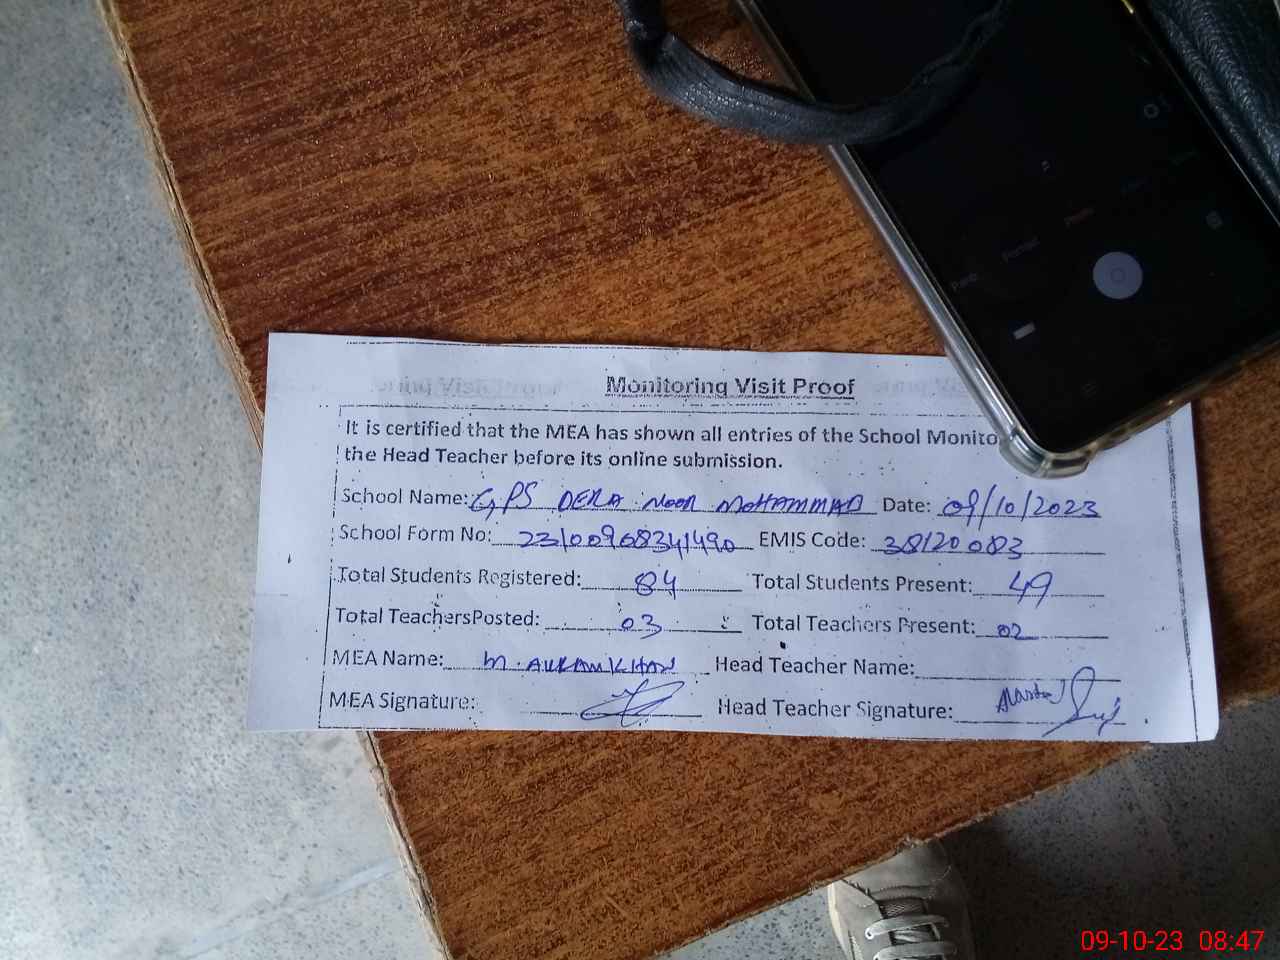 Monitoring Visit Proof
It is certified that the MEA has shown all entries of the School Monito
the Head Teacher before its online submission.
School Name: GPS DERA NOOR MOHAMMAD Date: 09/10/2023
School Form No: 23100968341490 EMIS Code: 38120083
Total Students Registered: 84 Total Students Present: 49
Total TeachersPosted: 03 Total Teachers Present: 02
MEA Name: M. AKRAM KHAN Head Teacher Name:
MEA Signature: Head Teacher Signature:
09-10-23 08:47